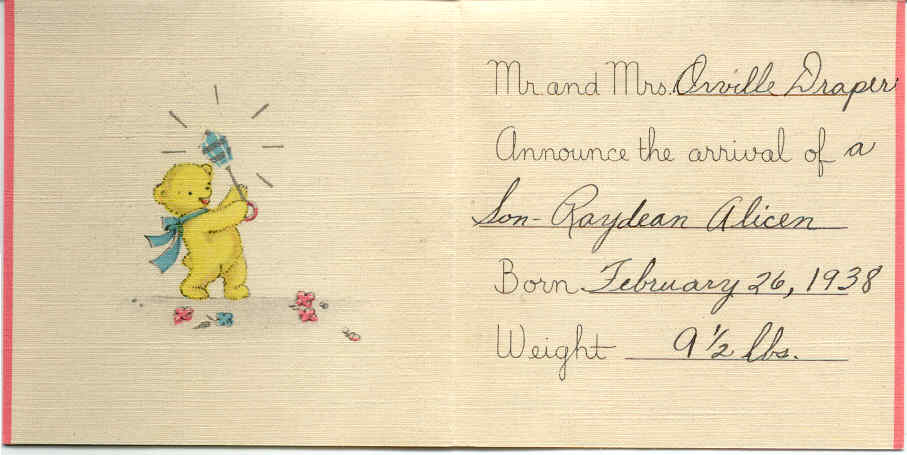 Mr. and Mrs. Orville Draper
Announce the arrival of a
Son - Raydean Alicen
Born February 26, 1938
Weight 9 1/2 lbs.